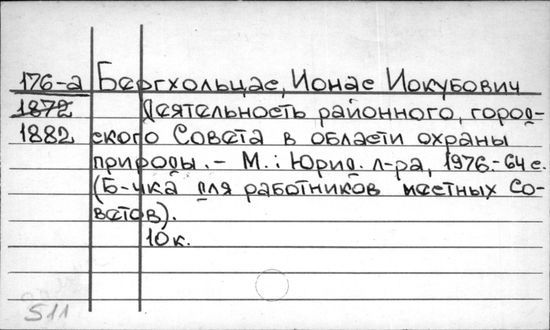 176-а Бергхольцас, Ионас Иокубович
1872 Деятельность районного, город-
1882 ского Совета в области охраны
природы. - М.: Юрид. л-ра, 1976.- 64 с.
(Б-чка для работников местных Со-
ветов).
10 к.
511